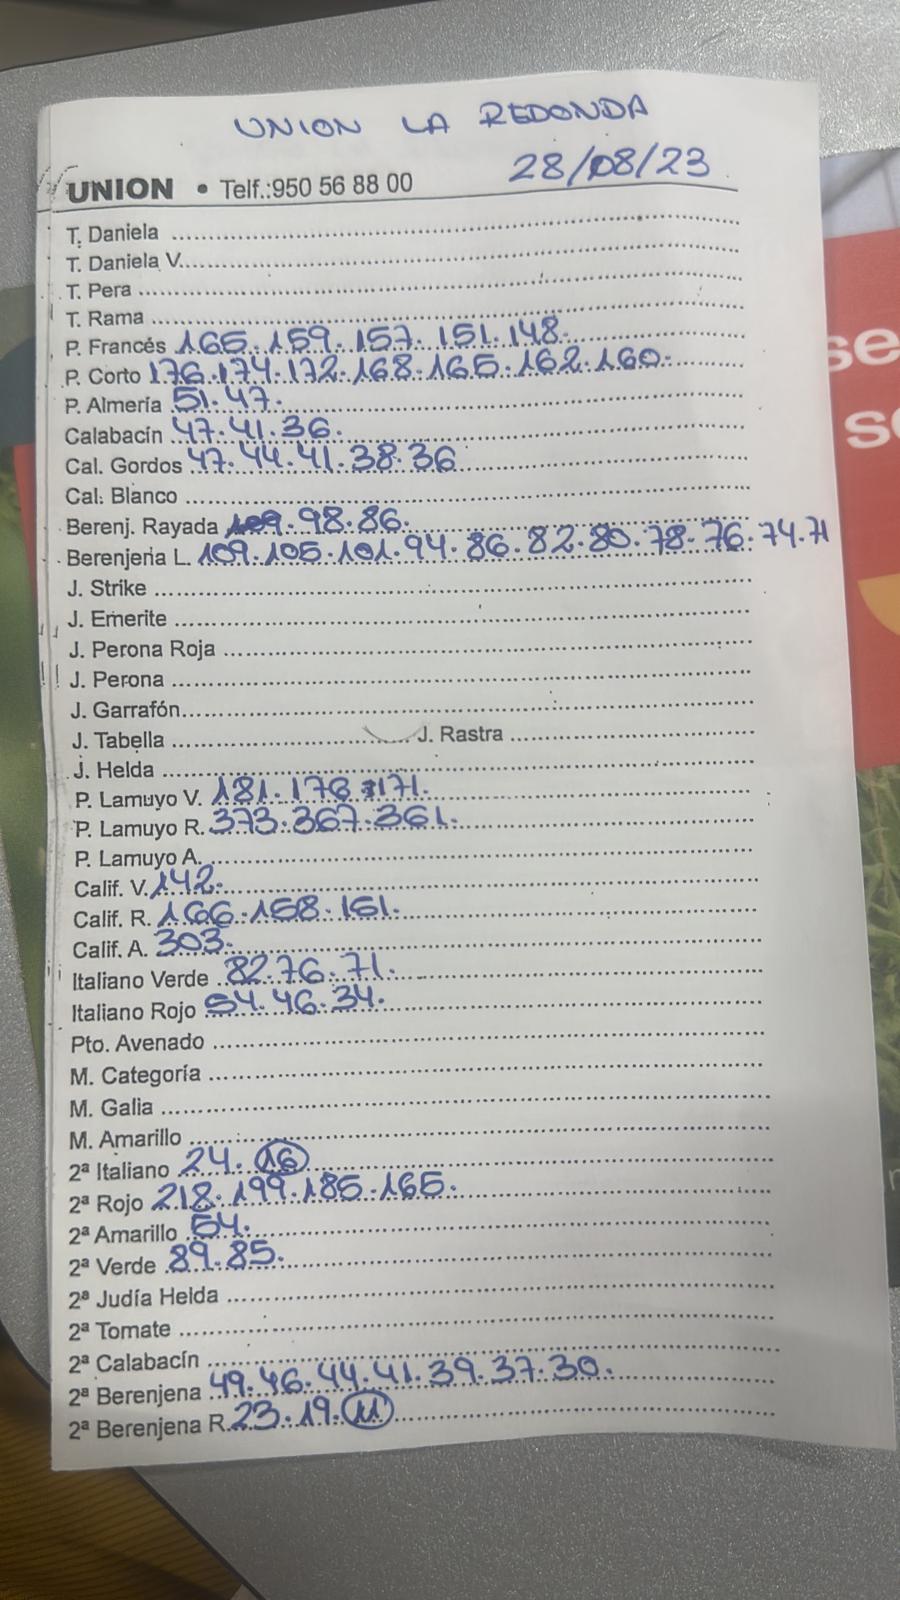 UNION LA REDONDA
28/08/23
UNION • Telf.:950 56 88 00
T. Daniela
T. Daniela V.
T. Pera
T. Rama
P. Francés 165. 159. 157. 151. 148.
P. Corto 176. 174. 172. 168. 165. 162. 160.
P. Almería 51. 47.
Calabacín 47. 41. 36.
Cal. Gordos 47. 44. 41. 38. 36
Cal. Blanco
Berenj. Rayada 109. 98. 86.
Berenjena L. 109. 105. 101. 94. 86. 82. 80. 78. 76. 74. 71
J. Strike
J. Emerite
J. Perona Roja
J. Perona
J. Garrafón
J. Tabella J. Rastra
J. Helda
P. Lamuyo V. 181. 176. 171.
P. Lamuyo R. 373. 367. 361.
P. Lamuyo A.
Calif. V. 142.
Calif. R. 166. 158. 151.
Calif. A. 303.
Italiano Verde 82. 76. 71.
Italiano Rojo 54. 46. 34.
Pto. Avenado
M. Categoría
M. Galia
M. Amarillo
2ª Italiano 24. 16
2ª Rojo 218. 199. 185. 165.
2ª Amarillo 54.
2ª Verde 89. 85.
2ª Judía Helda
2ª Tomate
2ª Calabacín
2ª Berenjena 49. 46. 44. 41. 39. 37. 30.
2ª Berenjena R. 23. 19. 11
se
so